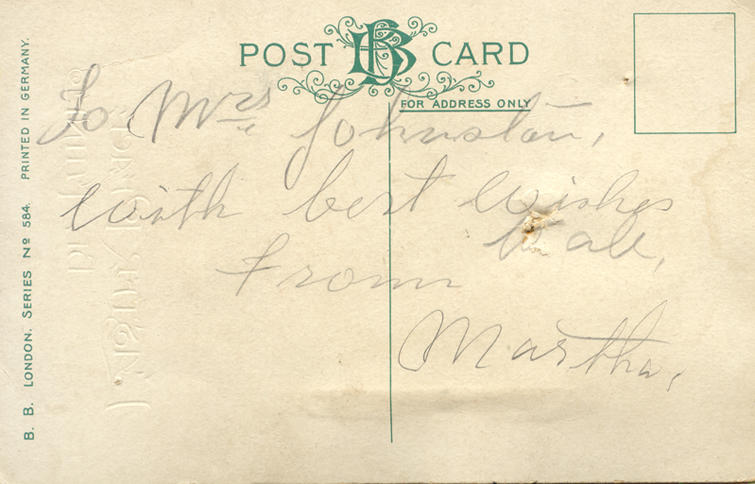 POST BB CARD
FOR ADDRESS ONLY
To Mrs Johnston,
with best wishes
to all,
From
Martha,
B. B. LONDON. SERIES Nº 584. PRINTED IN GERMANY.